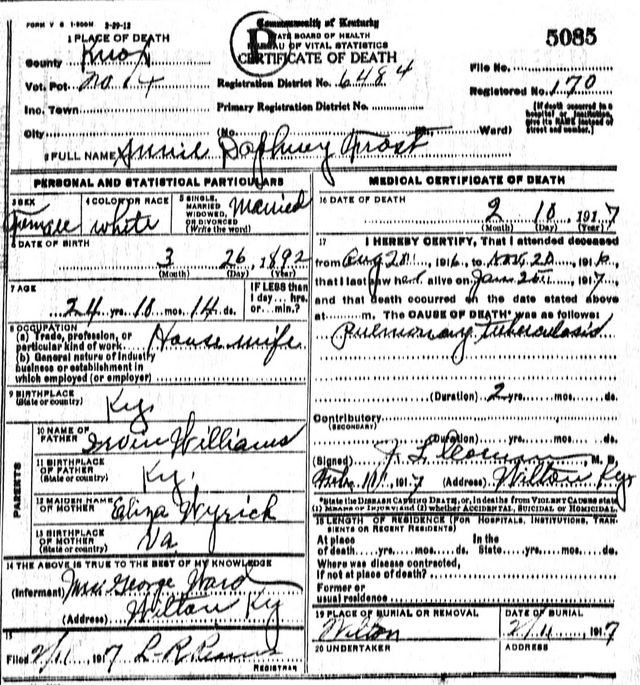 FORM V S 1-500M 2-29-12
Commonwealth of Kentucky
STATE BOARD OF HEALTH
BUREAU OF VITAL STATISTICS
CERTIFICATE OF DEATH
5085
1 PLACE OF DEATH
County Knox
Vot. Pct. No 14
Inc. Town
City
Registration District No. 6484
Primary Registration District No.
(No. St. Ward)
File No.
Registered No. 170
[If death occurred in a hospital or institution, give its NAME instead of street and number.]
2 FULL NAME Annie Daphney Frost
PERSONAL AND STATISTICAL PARTICULARS
3 SEX Female
4 COLOR OR RACE white
5 SINGLE, MARRIED WIDOWED, OR DIVORCED (Write the word) Married
6 DATE OF BIRTH
3 26, 1892
(Month) (Day) (Year)
7 AGE
24 yrs. 10 mos. 14 ds.
IF LESS than 1 day... hrs. or... min.?
8 OCCUPATION
(a) Trade, profession, or particular kind of work House wife
(b) General nature of industry business or establishment in which employed (or employer)
9 BIRTHPLACE (State or country) Ky.
PARENTS
10 NAME OF FATHER Irvin Williams
11 BIRTHPLACE OF FATHER (State or country) Ky.
12 MAIDEN NAME OF MOTHER Eliza Wyrick
13 BIRTHPLACE OF MOTHER (State or country) Va
14 THE ABOVE IS TRUE TO THE BEST OF MY KNOWLEDGE
(Informant) Mrs George Ward
(Address) Wilton Ky
15
Filed 2/11, 1917 L. R.
REGISTRAR
MEDICAL CERTIFICATE OF DEATH
16 DATE OF DEATH
2 10, 1917
(Month) (Day) (Year)
17 I HEREBY CERTIFY, That I attended deceased
from Aug 20, 1916, to Nov. 20, 1916,
that I last saw her alive on Jan 25, 1917,
and that death occurred on the date stated above
at m. The CAUSE OF DEATH* was as follows:
Pulmonary tuberculosis
(Duration) 2 yrs. mos. ds.
Contributory
(SECONDARY)
(Duration) yrs. mos. ds.
(Signed) J. L. M. D.
Feb. 10, 1917 (Address) Wilton Ky
*State the DISEASE CAUSING DEATH, or, in deaths from VIOLENT CAUSES state
(1) MEANS OF INJURY; and (2) whether ACCIDENTAL, SUICIDAL or HOMICIDAL.
18 LENGTH OF RESIDENCE (FOR HOSPITALS, INSTITUTIONS, TRANSIENTS OR RECENT RESIDENTS)
At place of death yrs. mos. ds. In the State yrs. mos. ds.
Where was disease contracted,
If not at place of death?
Former or
usual residence
19 PLACE OF BURIAL OR REMOVAL
Wilton
DATE OF BURIAL
2/11, 1917
20 UNDERTAKER
ADDRESS